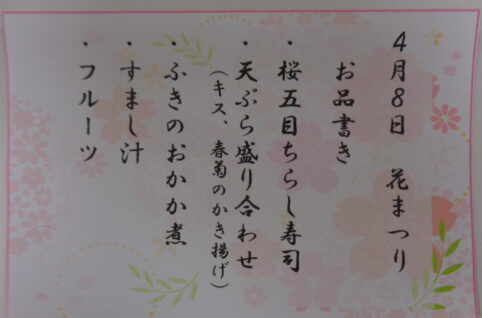 4月8日　花まつり
お品書き
・桜五目ちらし寿司
・天ぷら盛り合わせ
（キス、春菊のかき揚げ）
・ふきのおかか煮
・すまし汁
・フルーツ